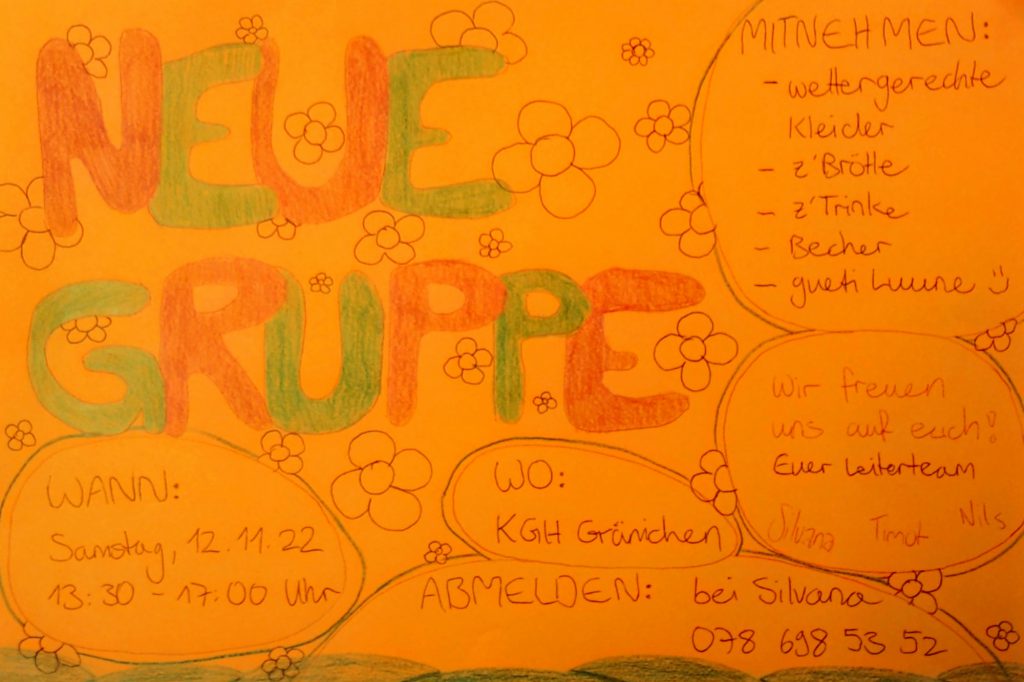 NEUE
GRUPPE
MITNEHMEN:
- wettergerechte
Kleider
- z'Brötle
- z'Trinke
- Becher
- gueti Luune :)
Wir freuen
uns auf euch!
Euer Leiterteam
Silvana Timot Nils
WANN:
Samstag, 12.11.22
13:30 - 17:00 Uhr
WO:
KGH Gränichen
ABMELDEN: bei Silvana
078 698 53 52